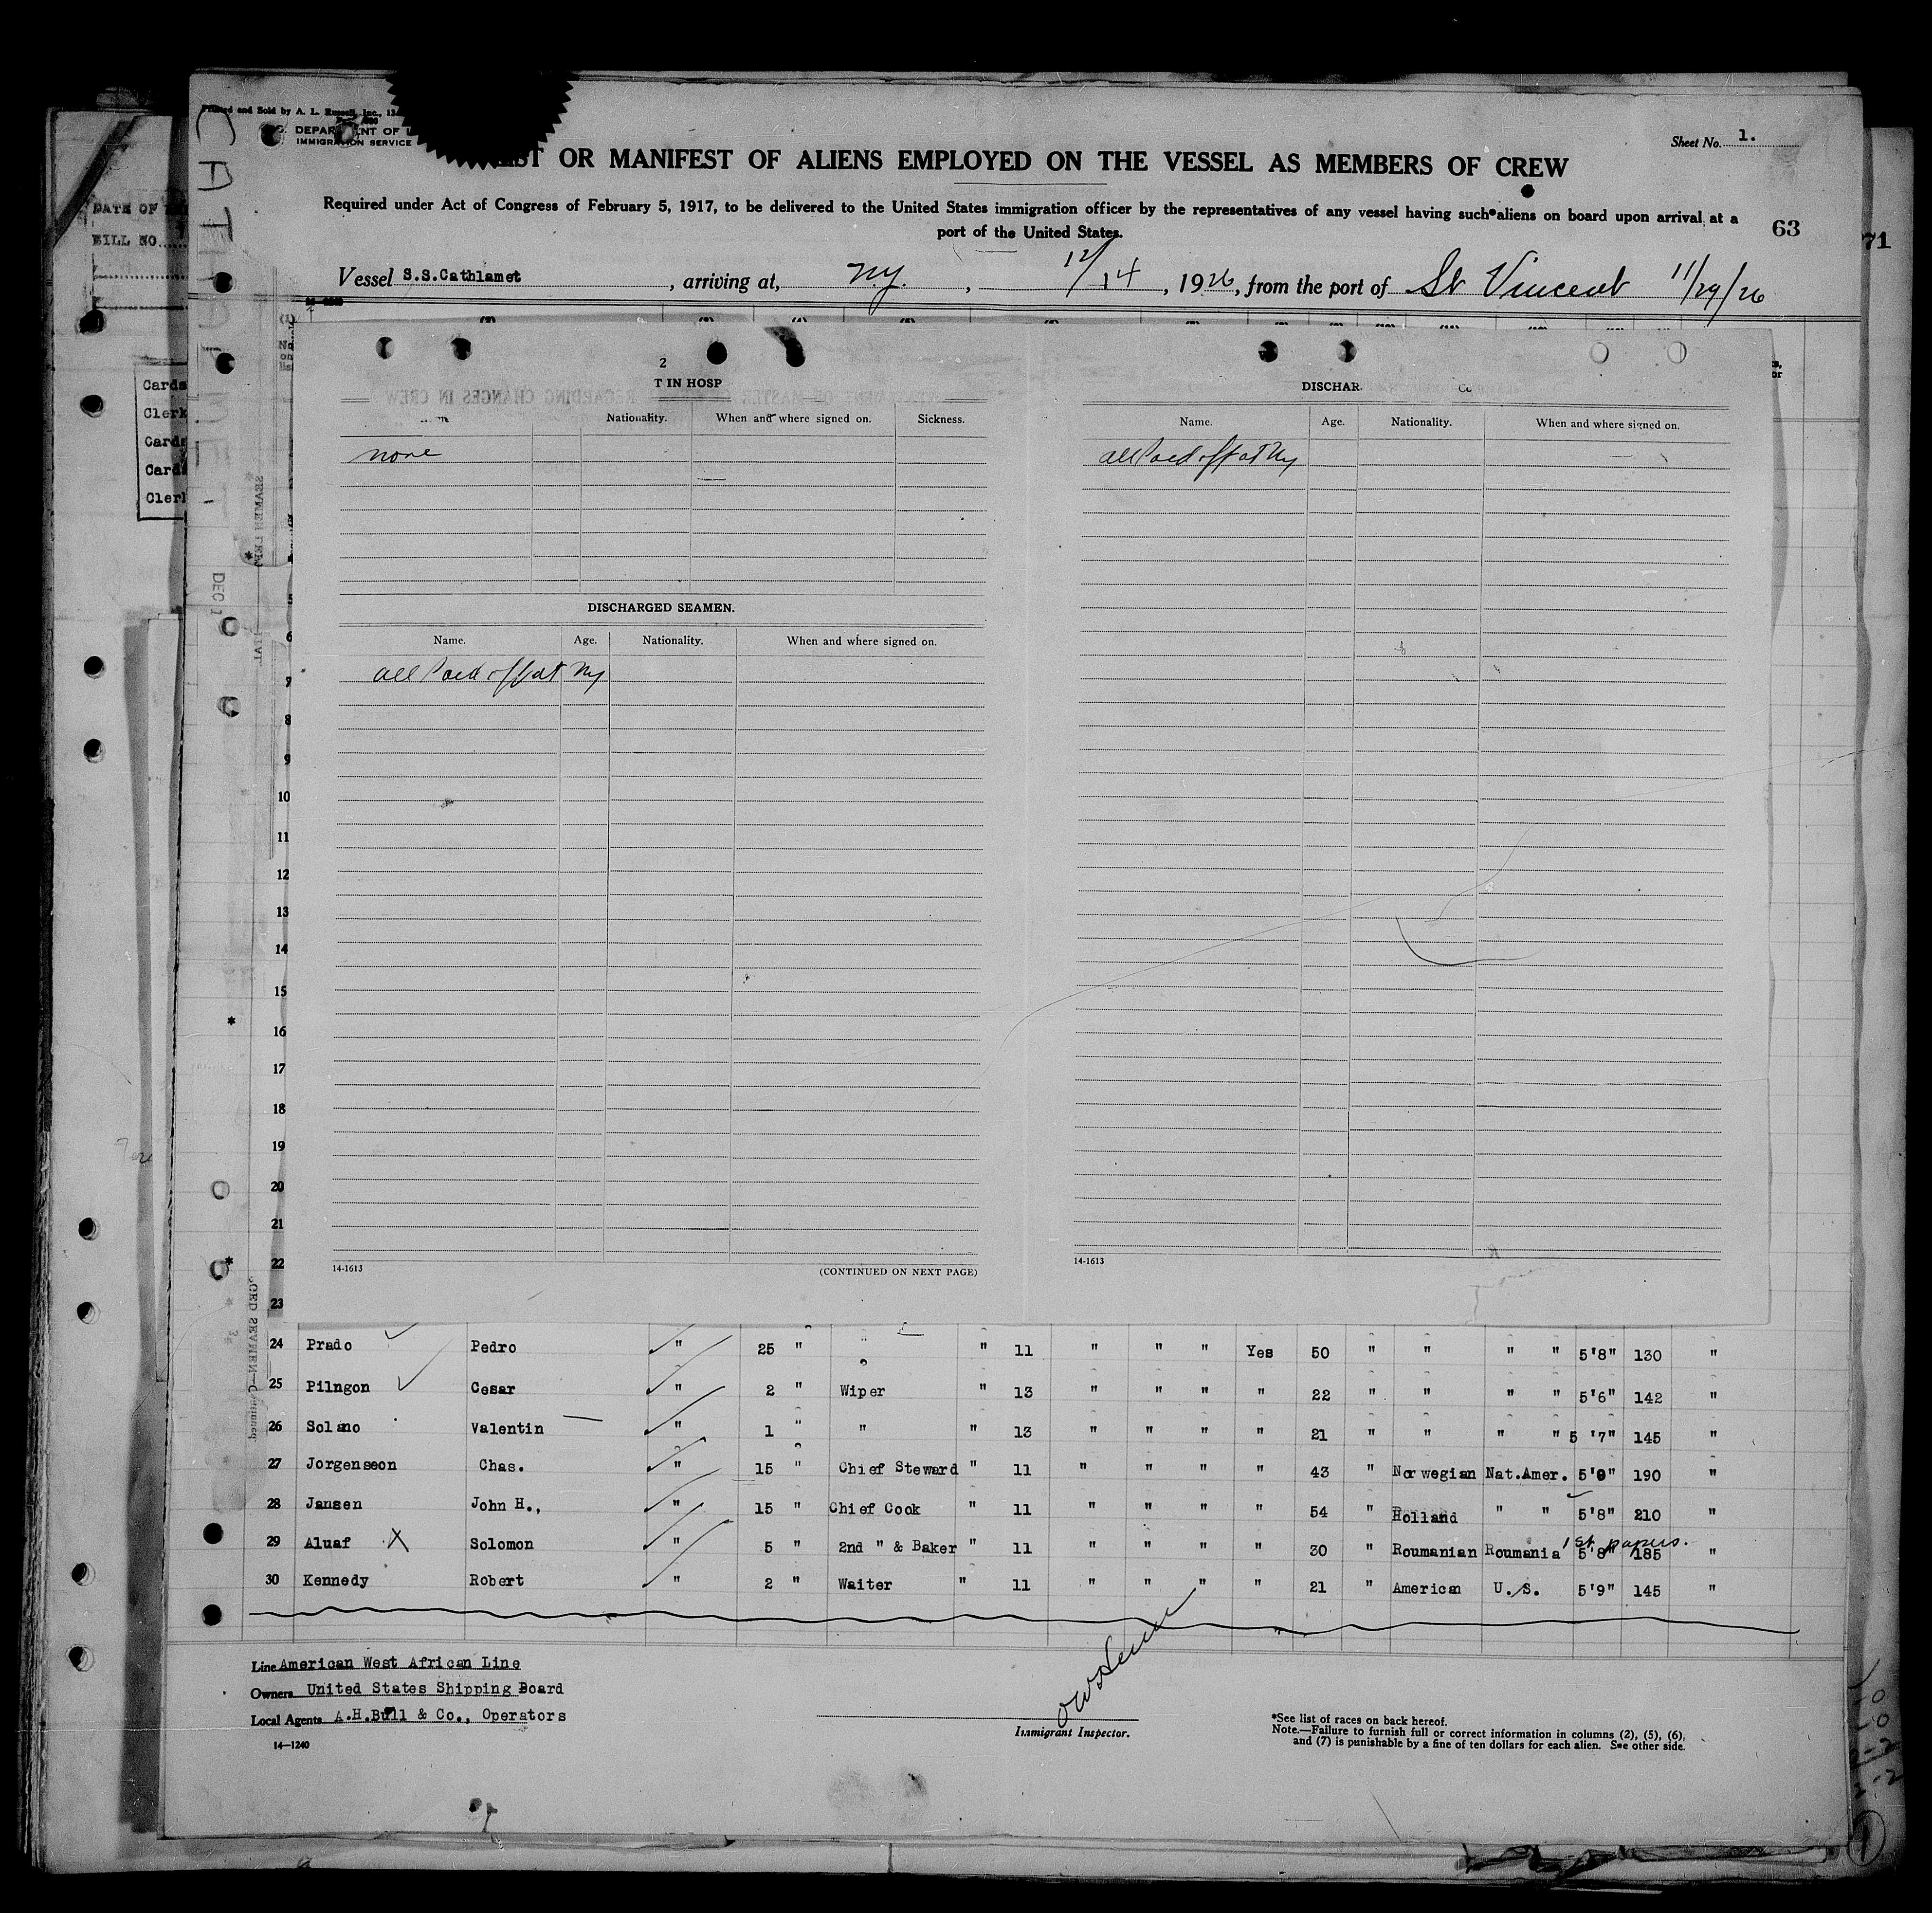 Printed and Sold by A. L. Russell, Inc.,
IMMIGRATION SERVICE
Sheet No. 1.
OR MANIFEST OF ALIENS EMPLOYED ON THE VESSEL AS MEMBERS OF CREW
Required under Act of Congress of February 5, 1917, to be delivered to the United States immigration officer by the representatives of any vessel having such aliens on board upon arrival at a
port of the United States.
63
71
Vessel S.S.Cathlamet, arriving at, N.Y., 12/14, 1926, from the port of St Vincent 11/29/26
DATE OF
BILL NO.
Cards
Clerk
Cards
Card
Cler
DEC 1
2
T IN HOSP
Nationality. When and where signed on. Sickness.
none
DISCHARGED SEAMEN.
Name. Age. Nationality. When and where signed on.
all Paid off at NY
14-1613
(CONTINUED ON NEXT PAGE)
DISCHAR
Name. Age. Nationality. When and where signed on.
all Paid off at NY
14-1613
5
6
7
8
9
10
11
12
13
14
15
16
17
18
19
20
21
22
23
24 Prado Pedro " 25 " " " 11 " " " Yes 50 " " " " 5'8" 130 "
25 Pilngon Cesar " 2 " Wiper " 13 " " " " 22 " " " " 5'6" 142 "
26 Solano Valentin " 1 " " " 13 " " " " 21 " " " " 5 '7" 145 "
27 Jorgenseon Chas. " 15 " Chief Steward " 11 " " " " 43 " Norwegian Nat.Amer. 5'9" 190 "
28 Jansen John H., " 15 " Chief Cook " 11 " " " " 54 " Holland " " 5'8" 210 "
29 Aluaf X Solomon " 5 " 2nd " & Baker " 11 " " " " 30 " Roumanian Roumania 1st papers. 5'8" 185 "
30 Kennedy Robert " 2 " Waiter " 11 " " " " 21 " American U.S. 5'9" 145 "
Line American West African Line
Owners United States Shipping Board
Local Agents A.H.Bull & Co., Operators
14-1240
Immigrant Inspector.
*See list of races on back hereof.
Note.—Failure to furnish full or correct information in columns (2), (5), (6),
and (7) is punishable by a fine of ten dollars for each alien. See other side.